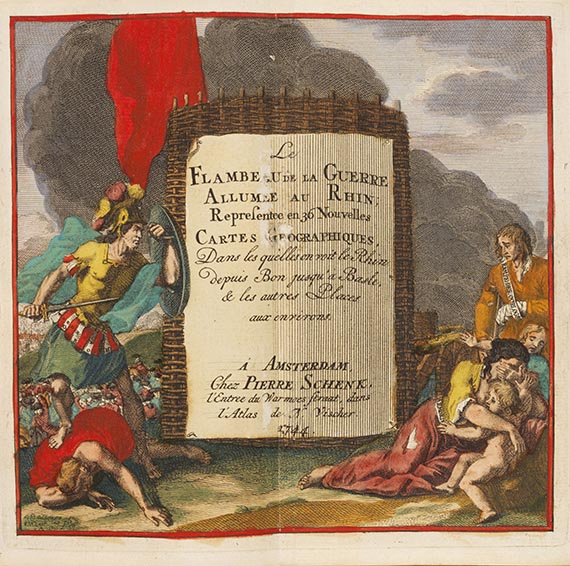 Le
FLAMBEAU DE LA GUERRE
ALLUMÉE AU RHIN,
Representée en 36 Nouvelles
CARTES GEOGRAPHIQUES,
Dans les quelles on voit le Rhin
depuis Bon jusqu'à Basle,
& les autres Places
aux environs.
à AMSTERDAM,
Chez PIERRE SCHENK,
l'Entrée du Warmoes straat, dans
l'Atlas de N. Visscher.
1744.